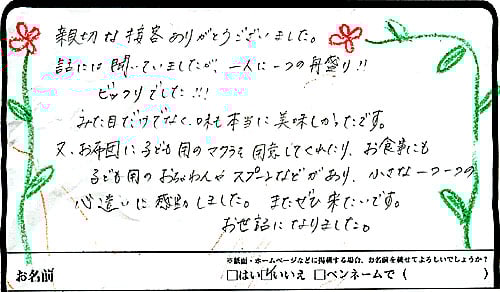 親切な接客ありがとうございました。
話には聞いていましたが、一人に一つの舟盛り!!
ビックリでした!!!
みた目だけでなく、味も本当に美味しかったです。
又、お布団に子ども用のマクラを用意してくれたり、お食事にも
子ども用のおちゃわんやスプーンなどがあり、小さな一つ一つの
心遣いに感動しました。またぜひ来たいです。
お世話になりました。
※紙面・ホームページなどに掲載する場合、お名前を載せてよろしいでしょうか?
お名前 □はい☑いいえ □ペンネームで( )